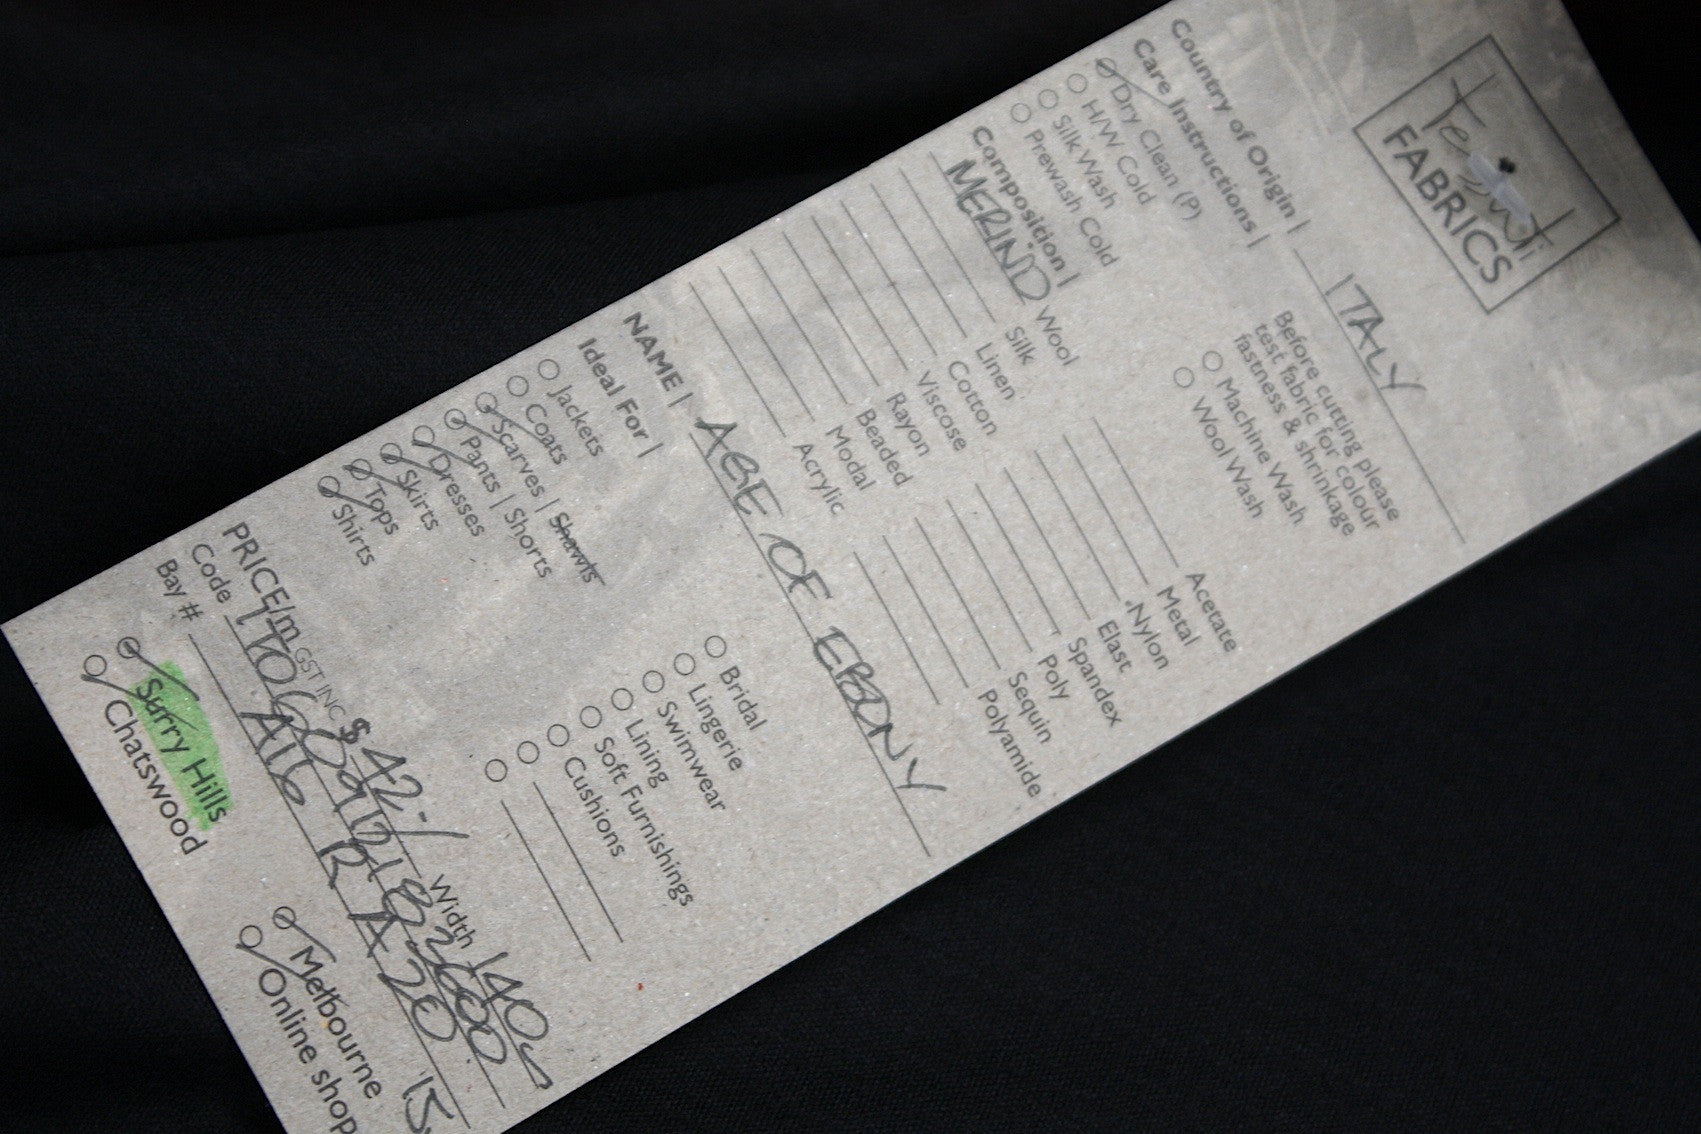 Tessuti
FABRICS
Country of Origin | ITALY
Care Instructions |
Dry Clean (P)
H/W Cold
Silk Wash
Prewash Cold
Before cutting please
test fabric for colour
fastness & shrinkage
Machine Wash
Wool Wash
Composition |
MERINO Wool
Silk
Linen
Cotton
Viscose
Rayon
Beaded
Modal
Acrylic
Acetate
Metal
Nylon
Elast
Spandex
Poly
Sequin
Polyamide
NAME | AGE OF EBONY
Ideal For |
Jackets
Coats
Scarves | Shawls
Pants | Shorts
Dresses
Skirts
Tops
Shirts
Bridal
Lingerie
Swimwear
Lining
Soft Furnishings
Cushions
PRICE/m GST INC $ 42-/ Width 140
Code
Bay # A16 R A20
Surry Hills
Chatswood
Melbourne
Online shop